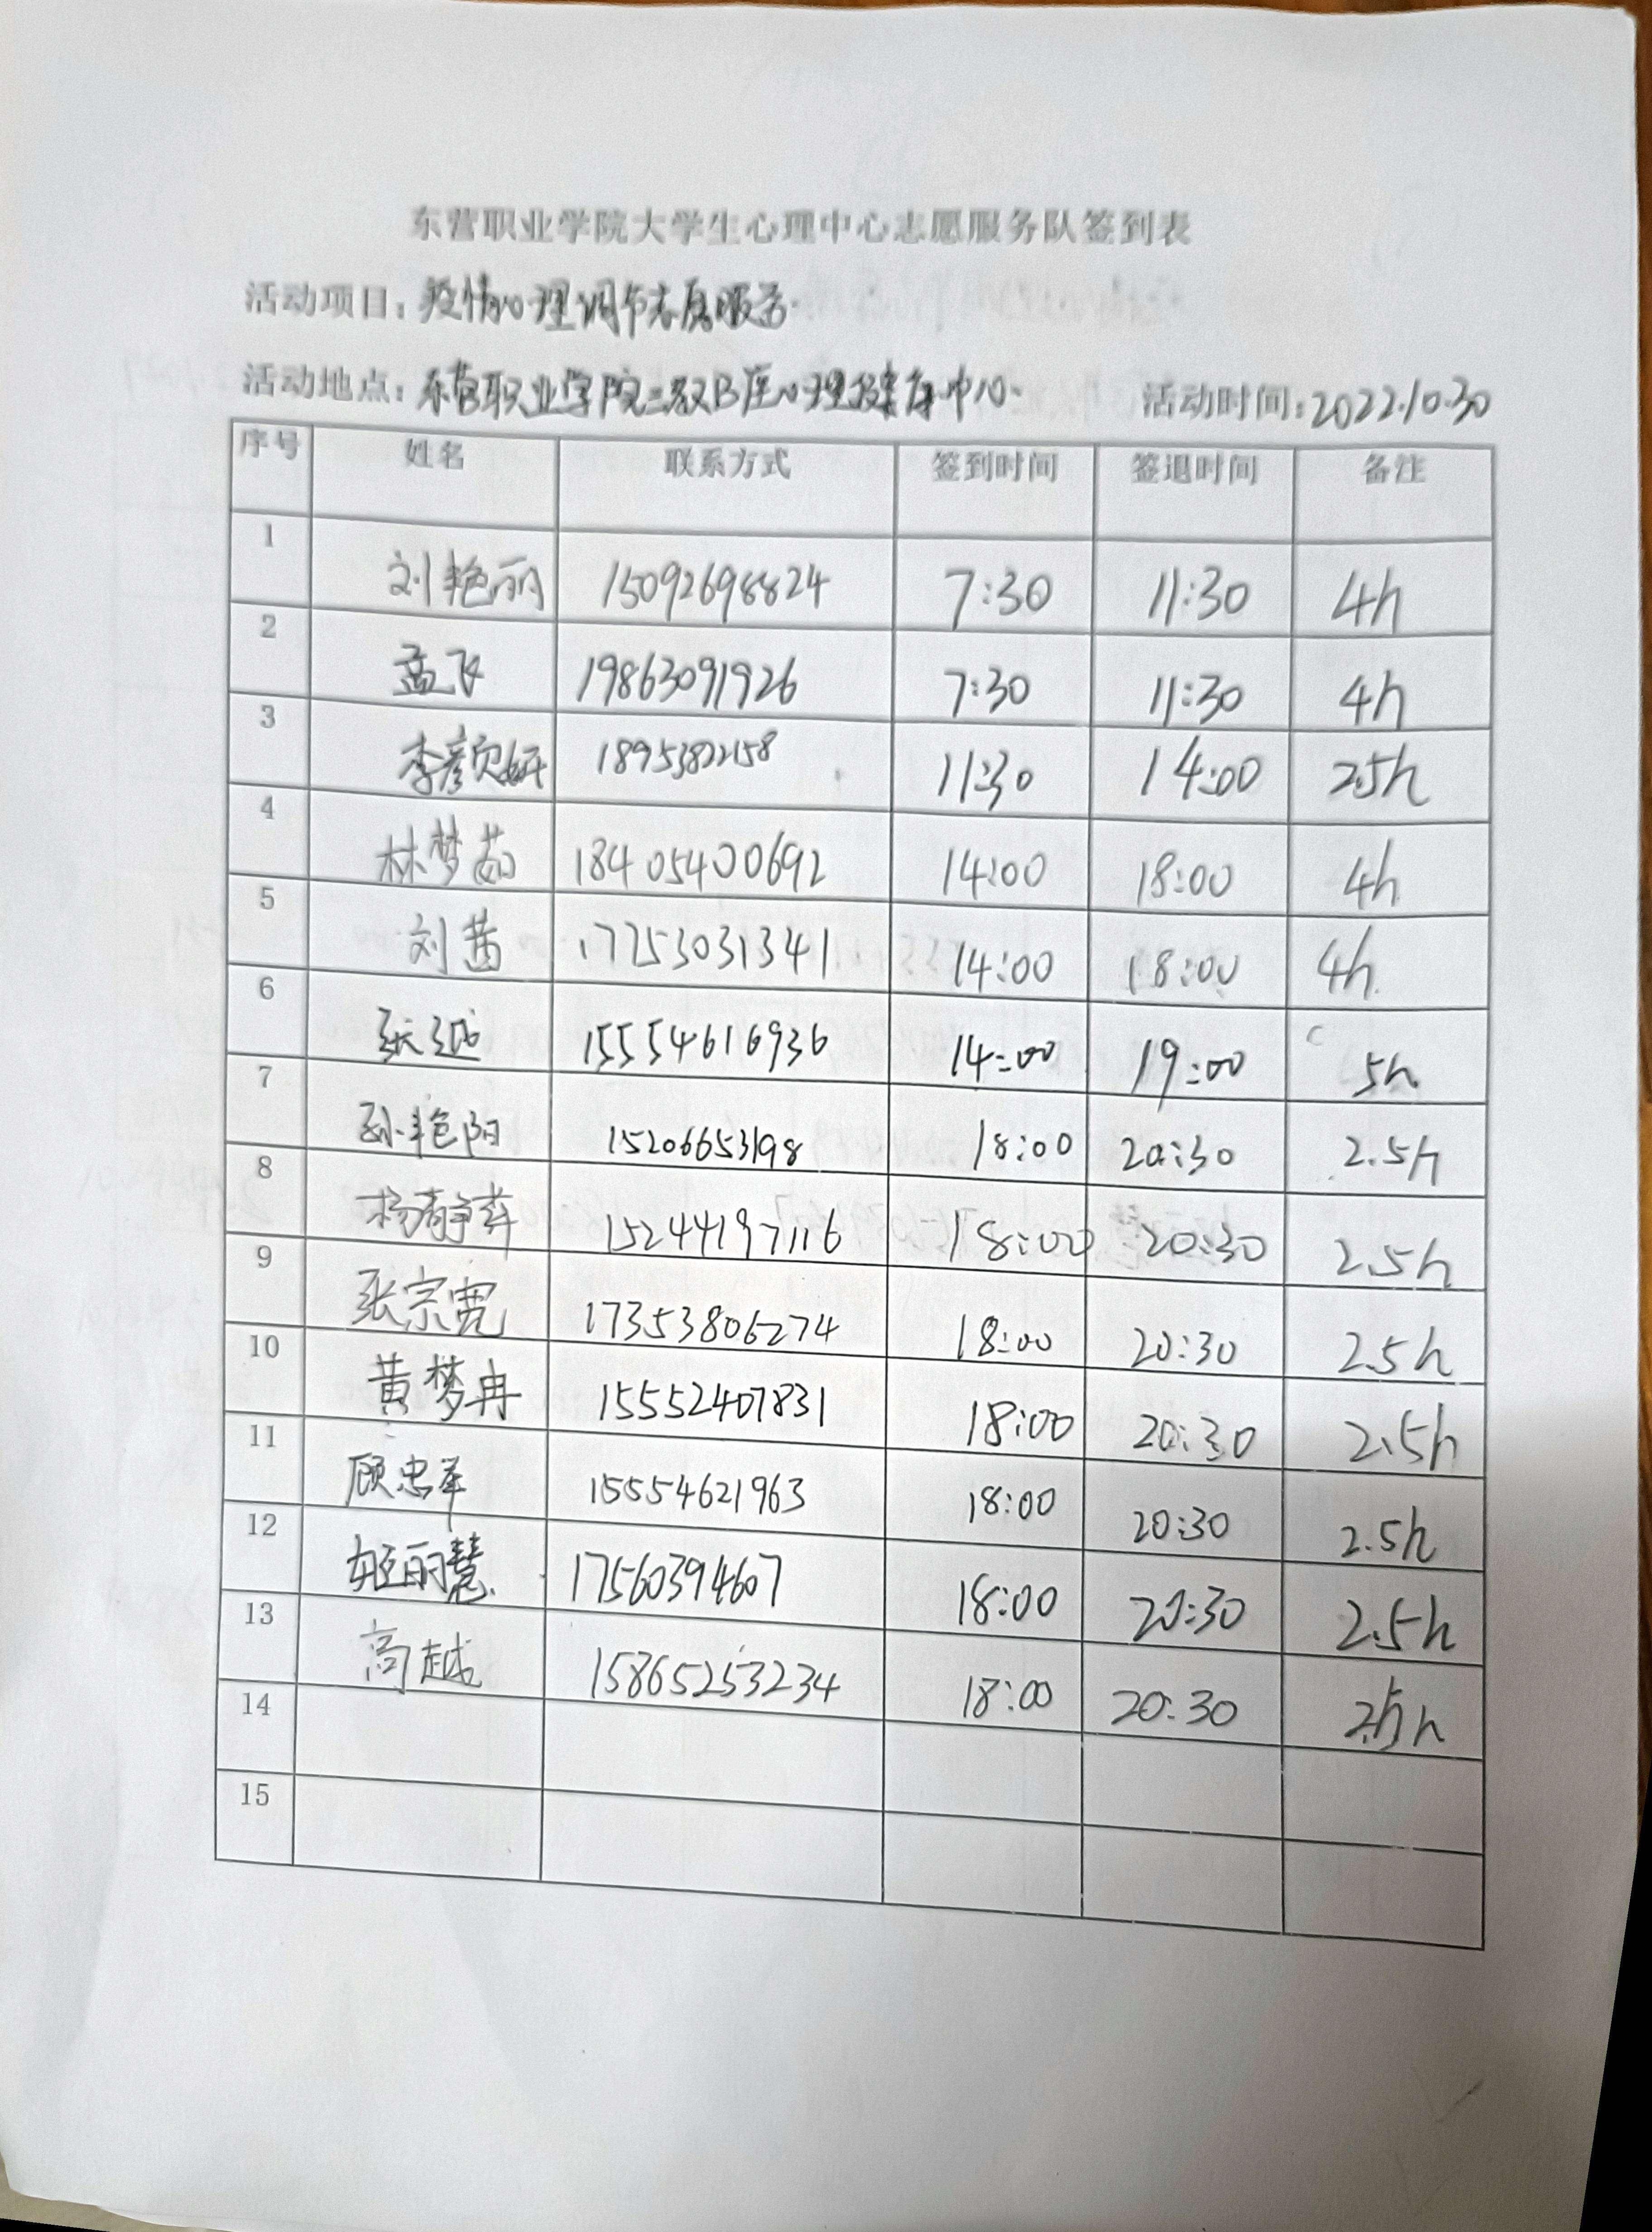 东营职业学院大学生心理中心志愿服务队签到表
活动项目：疫情心理调节志愿服务
活动地点：东营职业学院三教B座心理健康中心 活动时间：2022.10.30
序号 姓名 联系方式 签到时间 签退时间 备注
1 刘艳丽 15092698824 7:30 11:30 4h
2 孟飞 19863091926 7:30 11:30 4h
3 李颜妍 18953822158 11:30 14:00 2.5h
4 林梦茹 18405400692 14:00 18:00 4h
5 刘茜 17253031341 14:00 18:00 4h
6 15554616936 14:00 19:00 5h
7 孙艳阳 15206653198 18:00 20:30 2.5h
8 杨静 15244197116 18:00 20:30 2.5h
9 张宗宽 17353806274 18:00 20:30 2.5h
10 黄梦冉 15552407831 18:00 20:30 2.5h
11 顾忠 15554621963 18:00 20:30 2.5h
12 姬丽慧 17560394607 18:00 20:30 2.5h
13 高越 15865253234 18:00 20:30 2.5h
14
15